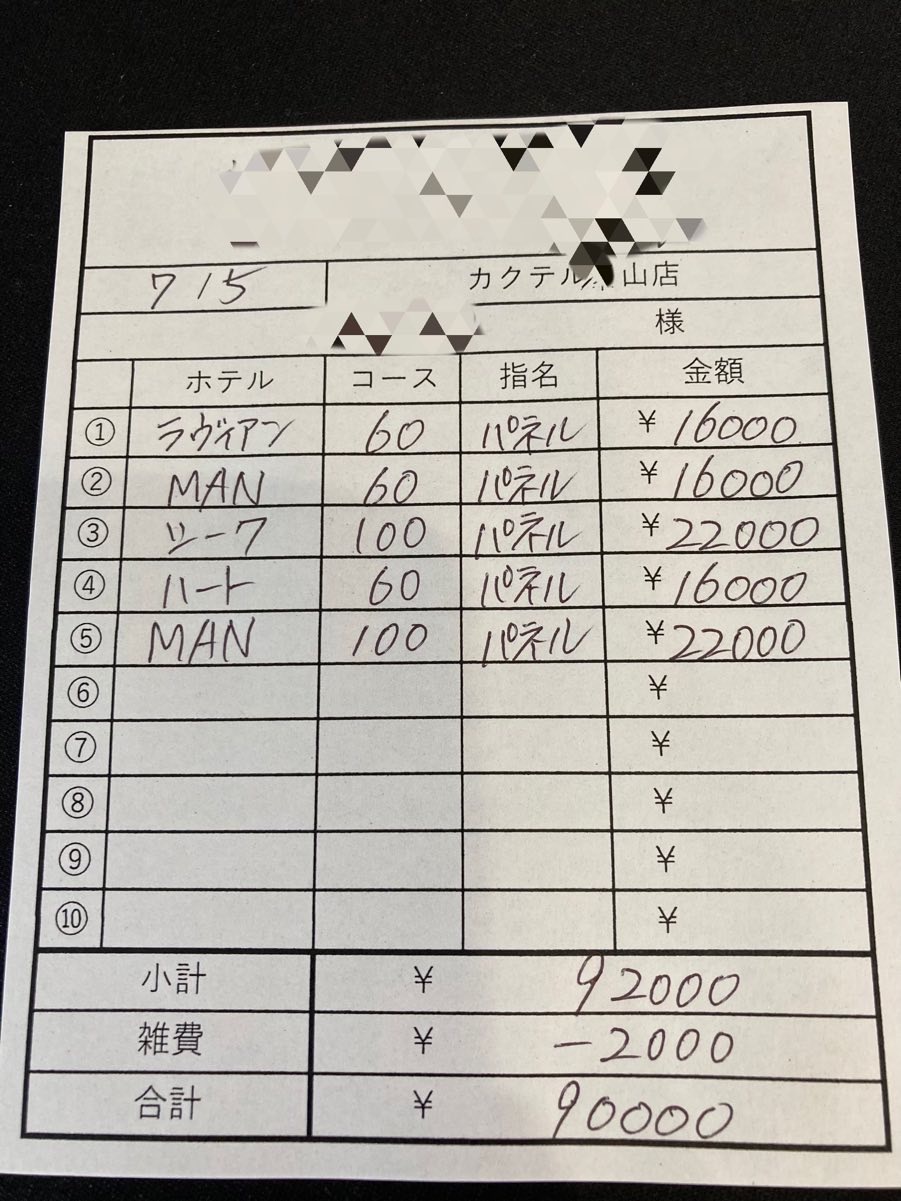 715 カクテル 山店
様
ホテル コース 指名 金額
① ラヴィアン 60 パネル ¥16000
② MAN 60 パネル ¥16000
③ シーク 100 パネル ¥22000
④ ハート 60 パネル ¥16000
⑤ MAN 100 パネル ¥22000
⑥ ¥
⑦ ¥
⑧ ¥
⑨ ¥
⑩ ¥
小計 ¥ 92000
雑費 ¥ -2000
合計 ¥ 90000